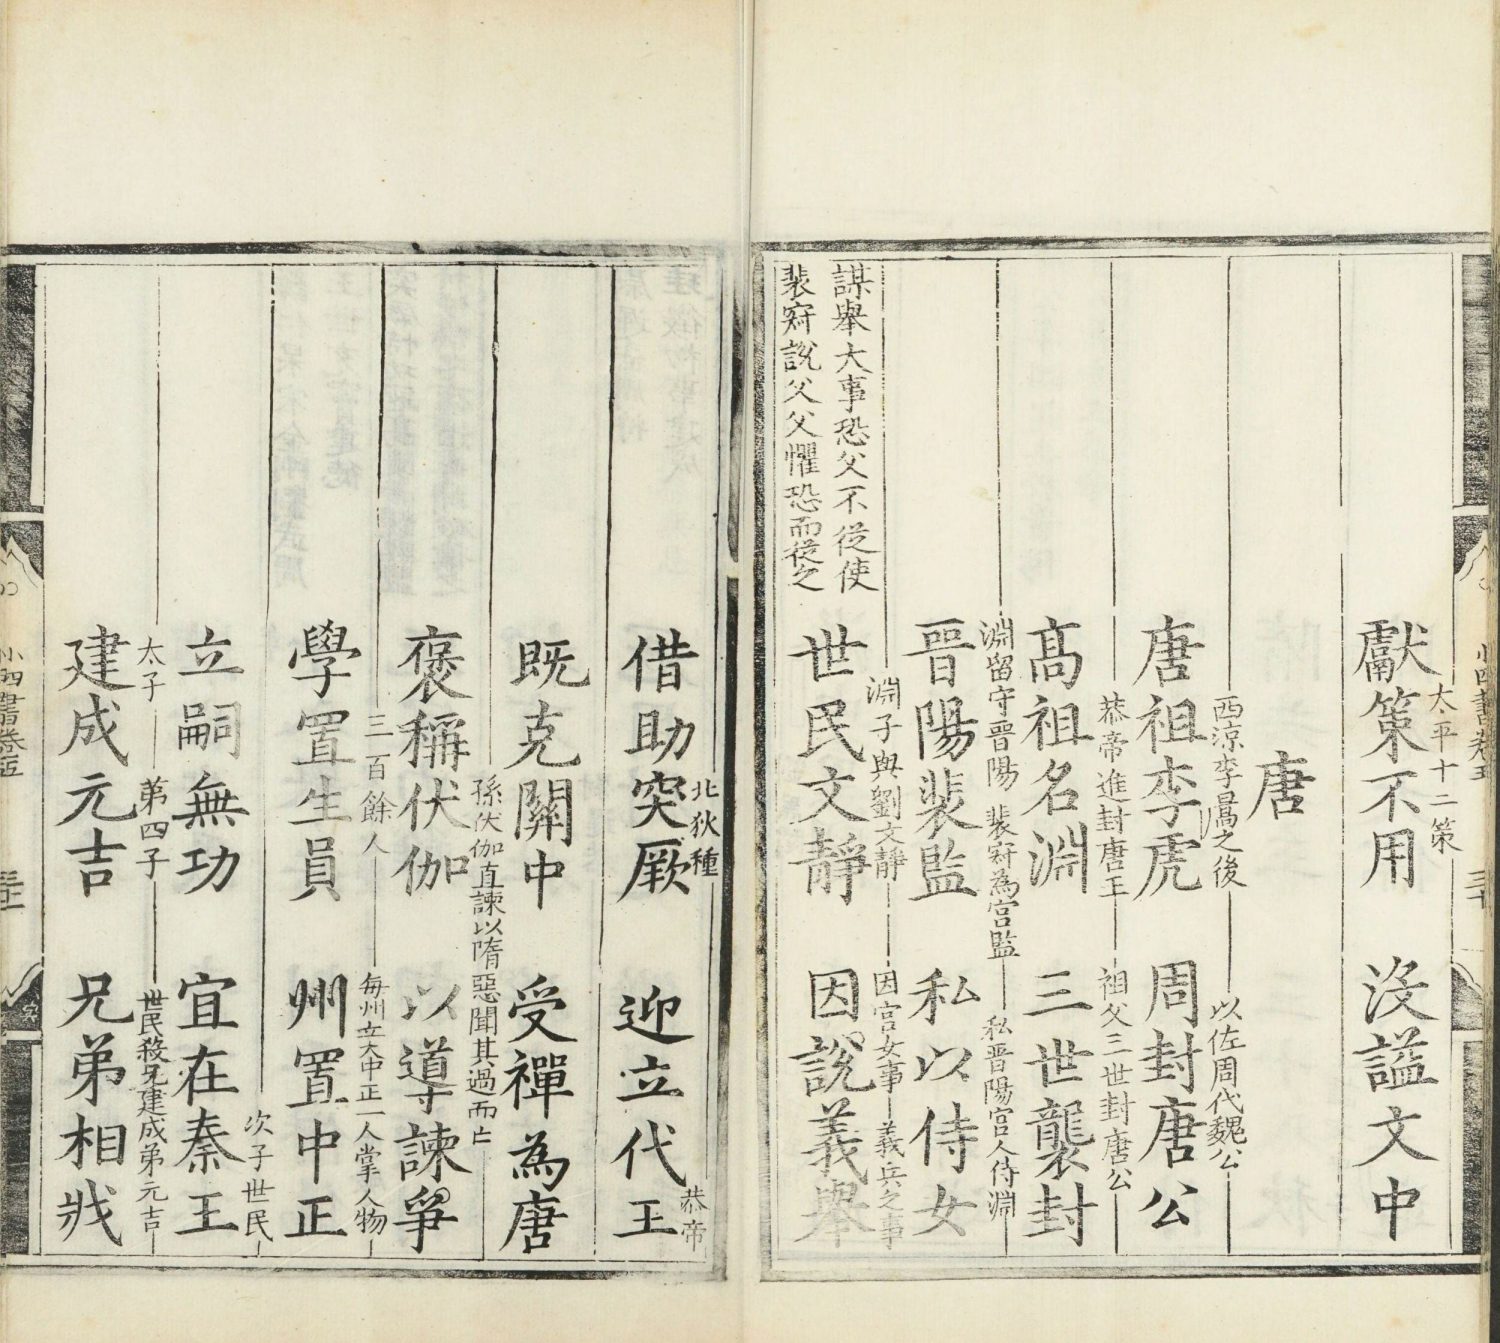 獻策不用　沒謚文中
太平十二策
唐
唐祖李虎　周封唐公
西涼李暠之後　以佐周代魏公
高祖名淵　三世襲封
恭帝進封唐王　祖父三世封唐公
晉陽裴監　私以侍女
淵留守晉陽　裴寂為宮監　私晉陽宮人侍淵
世民文靜　因說義舉
淵子與劉文靜　因宮女事　義兵之事
謀舉大事恐父不從使
裴寂說父父懼恐而從之
借助突厥　迎立代王
北狄種　恭帝
既克關中　受禪為唐
褒稱伏伽　以導諫爭
孫伏伽直諫以隋惡聞其過而亡
學置生員　州置中正
三百餘人　每州立大中正一人掌人物
立嗣無功　宜在秦王
次子世民
建成元吉　兄弟相戕
太子　第四子　世民殺兄建成弟元吉
小四書卷五